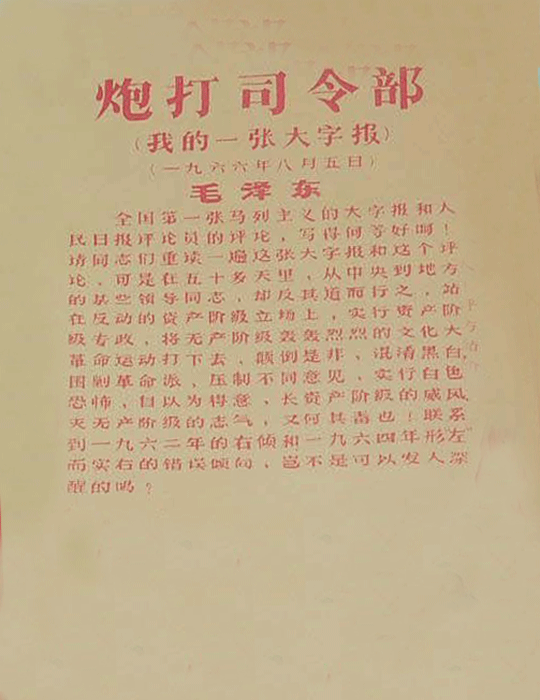 炮打司令部
(我的一张大字报)
(一九六六年八月五日)
毛泽东
全国第一张马列主义的大字报和人
民日报评论员的评论，写得何等好啊！
请同志们重读一遍这张大字报和这个评
论。可是在五十多天里，从中央到地方
的某些领导同志，却反其道而行之，站
在反动的资产阶级立场上，实行资产阶
级专政，将无产阶级轰轰烈烈的文化大
革命运动打下去，颠倒是非，混淆黑白，
围剿革命派，压制不同意见，实行白色
恐怖，自以为得意，长资产阶级的威风，
灭无产阶级的志气，又何其毒也！联系
到一九六二年的右倾和一九六四年形"左"
而实右的错误倾向，岂不是可以发人深
醒的吗？